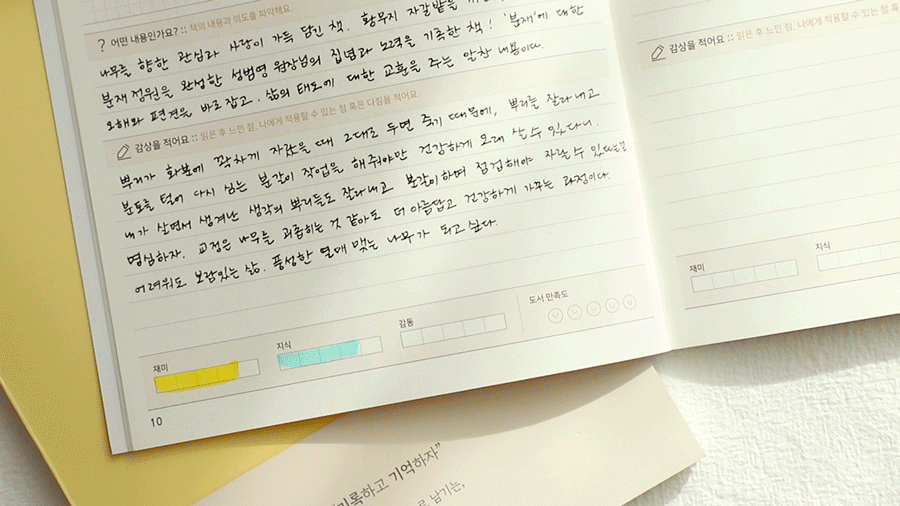 ? 어떤 내용인가요? :: 책의 내용과 의도를 파악해요.
나무를 향한 관심과 사랑이 가득 담긴 책. 황무지 자갈밭을
분재정원을 완성한 성범영 원장님의 집념과 노력을 기록한 책! '분재'에 대한
오해와 편견을 바로잡고, 삶의 태도에 대한 교훈을 주는 알찬 내용이다.
감상을 적어요 :: 읽은 후 느낀 점, 나에게 적용할 수 있는 점 혹은 다짐을 적어요.
뿌리가 화분에 꽉차게 자랐을 때 그대로 두면 죽기 때문에, 뿌리를 잘라내고
분토를 털어 다시 심는 분갈이 작업을 해줘야만 건강하게 오래 살 수 있다니.
내가 살면서 생겨난 생각의 뿌리들도 잘라내고 분갈이하며 점검해야 자랄 수 있다는걸
명심하자. 교정은 나무를 괴롭히는 것 같아도 더 아름답고 건강하게 가꾸는 과정이다.
어려워도 보람있는 삶. 풍성한 열매 맺는 나무가 되고 싶다.
재미
지식
감동
도서 만족도
10
감상을 적어요 :: 읽은 후 느낀 점, 나에게 적용할 수 있는 점
재미
지식
기록하고 기억하자"
남기는,